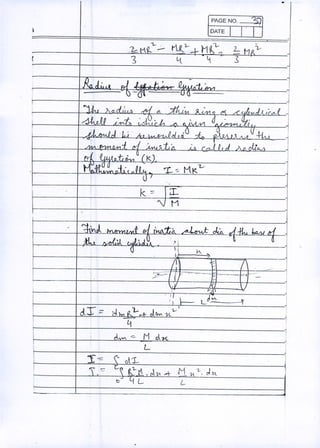 PAGE NO.
DATE
2 MR² - MR² + MR² = 2 MR²
3 4 4 3
Radius of Gyration
"The radius of a thin ring or cylindrical
shell into which a given geometry
should be remoulded to preserve the
moment of inertia is called radius
of Gyration (K).
Mathematically, I = MK²
K = √ I
M
Find moment of inertia about dia of the base of
the solid cylinder.
x
dx
L
dI = dm R² + dm x²
4
dm = M dx
L
I = ∫ dI
R² M . dx + M x² . dx
0 4L L